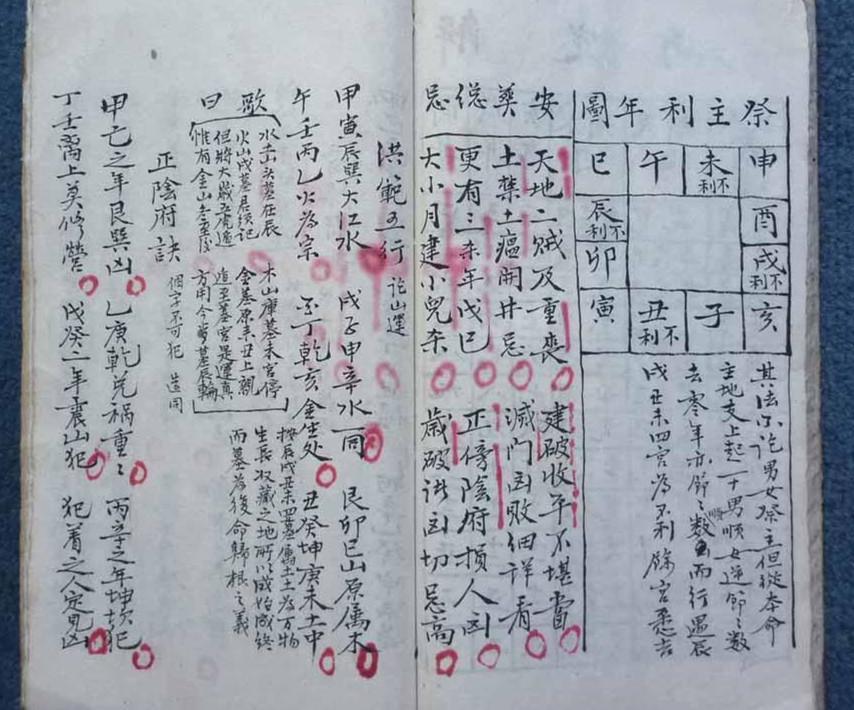 祭主利年圖
申
未不利
午
巳
酉
辰不利
戌不利
卯
亥
子
丑不利
寅
其法尔論男女祭主但從本命
主地支上起一十男順女逆節之數
去零年亦節之數順而行遇辰
戌丑未四宮為不利餘宮悉吉
安葬總忌
天地二賊及重喪 建破收平不堪當
土禁土瘟開井忌 滅門凶敗細詳看
更有三杀年戊巳 正傍陰府損人凶
大小月建小兒杀 歲破諸凶切忌高
洪範五行論山運
甲寅辰巽大江水 戌子申辛水一同 艮卯巳山原屬木
午壬丙乙火為宗 丁乾亥金生处 丑癸坤庚未土中
歌曰
水土山头墓在辰 木山庫墓未宮停
火山戌墓君須記 金墓原來丑上親
但將大歲五虎遁 造至墓宮是運真
惟有金山冬至后 方用今歲墓辰輪
按辰戌丑未四墓屬土土為万物
生長收藏之地所以成始成終
而墓為復命歸根之義
正陰府訣
個字不可犯 造同
甲己之年艮巽凶 乙庚乾兌禍重重 丙辛之年坤坎犯
丁壬离上莫修營 戊癸二年震山犯 犯着之人定見凶